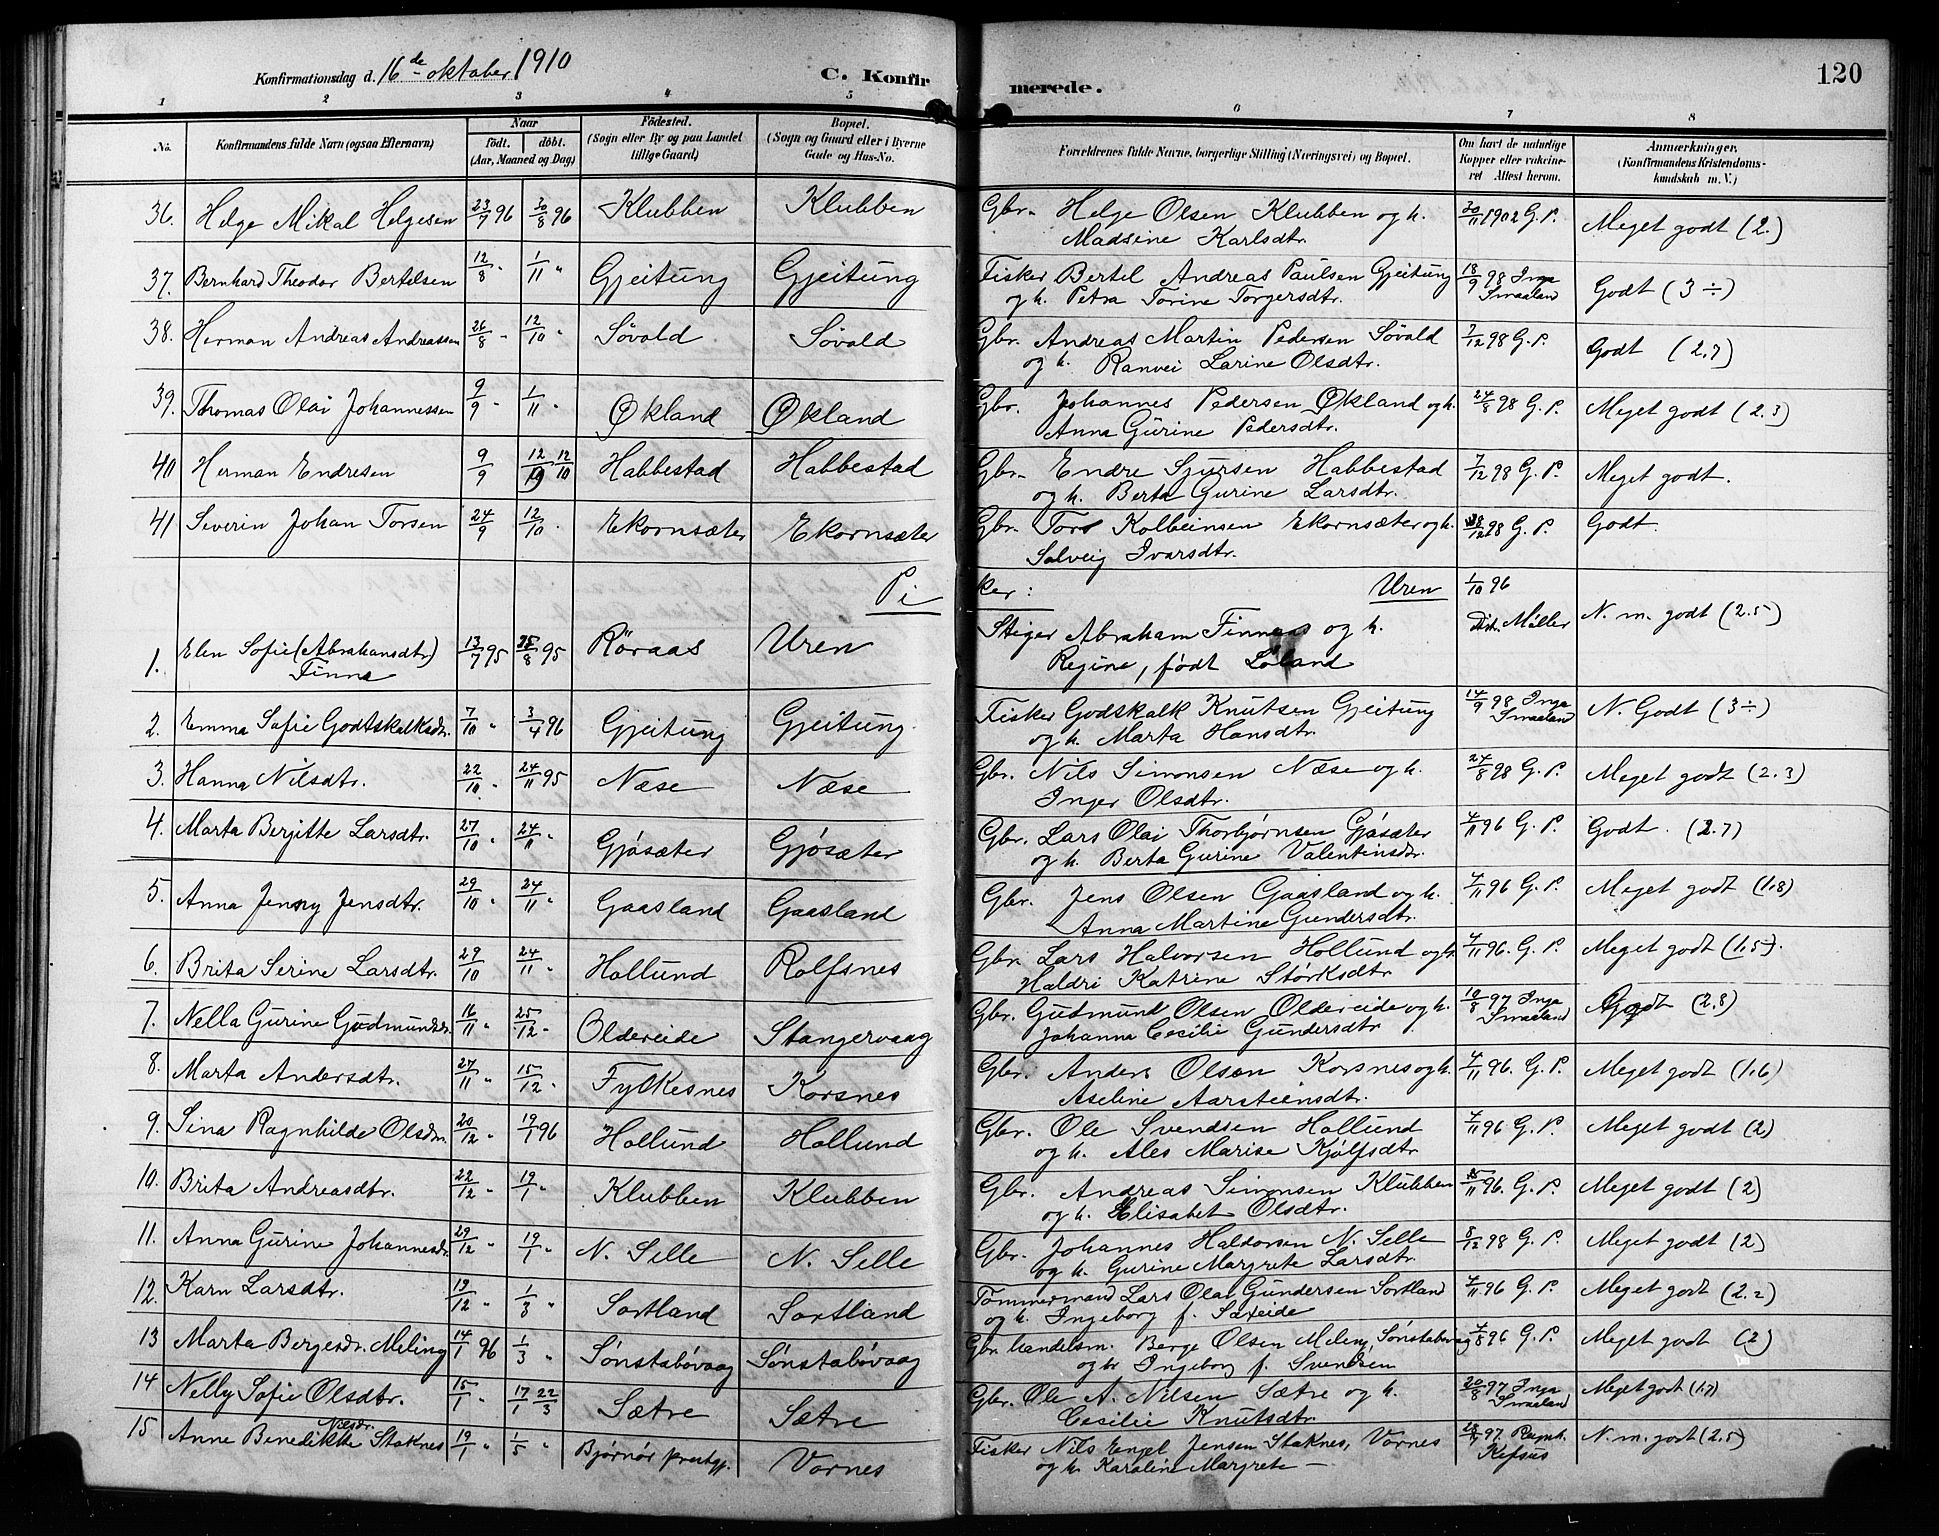 Konfirmationsdag d. 16de oktober 1910
C. Konfir
merede.
120
1 2 3 4 5 6 7 8
No.
Konfirmandens fulde Navn (ogsaa Efternavn)
Naar
födt. döbt.
(Aar, Maaned og Dag)
Födested.
(Sogn eller By og paa Landet
tillige Gaard)
Bopæl.
(Sogn og Gaard eller i Byerne
Gade og Hus-No.
Forældrenes fulde Navne, borgerlige Stilling (Næringsvei) og Bopæl.
Om havt de naturlige
Kopper eller vakcine-
ret Attest herom.
Anmærkninger.
(Konfirmandens Kristendoms-
kundskab m. V.)
36. Helge Mikal Helgesen 23/7 96 30/8 96 Klubben Klubben Gbr. Helge Olsen Klubben og h. 30/11 1902 G. P. Meget godt (2.)
Madsine Karlsdtr.
37. Bernhard Theodor Bertelsen 12/8 " 1/11 " Gjeitung Gjeitung Fisker Bertel Andreas Paulsen Gjeitung 18/9 98 Inga Godt (3÷)
og h. Petra Torine Torgersdtr. Imaeland
38. Herman Andreas Andreassen 26/8 " 12/10 " Søvold Søvold Gbr. Andreas Martin Pedersen Søvold 7/12 98 G. P. Godt (2.7)
og h. Ranvei Larine Olsdtr.
39. Thomas Olai Johannessen 9/9 " 1/11 " Økland Økland Gbr. Johannes Pedersen Økland og h. 24/8 98 G. P. Meget godt (2.3)
Anna Gurine Pedersdtr.
40 Herman Endresen 9/9 12/10 12/10 Habbestad Habbestad Gbr. Endre Sjursen Habbestad 7/12 98 G. P. Meget godt.
og h. Berta Gurine Larsdtr.
41 Severin Johan Torsen 24/9 12/10 " Ekornsæter Ekornsæter Gbr. Tore Kolbeinsen Ekornsæter og h. 98 G. P. Godt.
Solveig Ivarsdtr.
Pi
ker:
Uren 1/10 96
1. Elen Sofie (Abrahamsdtr) 13/7 95 25/8 95 Röraas Uren Stiger Abraham Finnaas og h. Dist. Møller N. m. godt (2.5)
Finne Regine, født Løland
2. Emma Sofie Godtskalksdr. 7/10 " 3/4 96 Gjeitung Gjeitung Fisker Godskalk Knutsen Gjeitung 14/9 98 Inga N. Godt (3÷)
og h. Marta Hansdtr. Imaeland
3. Hanna Nilsdtr. 22/10 " 24/11 95 Næse Næse Gbr. Nils Simonsen Næse og h. 24/8 98 G. P. Meget godt (2.3)
Inger Olsdtr.
4. Marta Bergitte Larsdtr. 27/10 " 24/11 " Gjøsæter Gjøsæter Gbr. Lars Olai Thorbjørnsen Gjøsæter 4/11 96 G. P. Godt. (2.7)
og h. Berta Gurine Valentinsdr.
5. Anna Jenny Jensdtr. 29/10 " 24/11 " Gaasland Gaasland Gbr. Jens Olsen Gaasland og h. 4/11 96 G. P. Meget godt (1.8)
Anna Martine Gundersdtr.
6. Brita Serine Larsdtr. 29/10 24/11 " Hollund Rolfsnes Gbr. Lars Halvorsen Hollund og h. 4/11 96. G. P. Meget godt (1.5).
Haldri Katrine Størksdtr
7. Nella Gurine Gudmundsdr. 16/11 " 25/12 " Oldereide Stangervaag Gbr. Gudmund Olsen Oldereide og h. 10/8 97 Inga Godt (2.8)
Johanna Cecilie Gundersdtr Imaeland
8. Marta Andersdtr. 27/11 " 15/12 " Fylkesnes Korsnes Gbr. Anders Olsen Korsnes og h. 4/11 96. G. P. Meget godt (1.6)
Aseline Aarsteinsdtr.
9. Sina Ragnhilde Olsdr. 20/12 " 19/1 96 Hollund Hollund Gbr. Ole Svendsen Hollund 4/11 96 G. P. Meget godt (2)
og h. Ales Marise Kjølfsdtr
10. Brita Andreasdtr. 22/12 " 19/1 " Klubben Klubben Gbr. Andreas Simonsen Klubben 96. G. P. Meget godt (2)
og h. Elisabet Olsdtr.
11. Anna Gurine Johannesdr. 29/12 " 19/1 " N. Selle N. Selle Gbr. Johannes Haldorsen N. Selle 8/12 98 G. P. Meget godt (2)
og h. Gurine Margrete Larsdtr.
12. Karn Larsdtr. 19/12 " 1/3 " Sortland Sortland Tømmermand Lars Olai Gundersen Sortland 4/11 96 G. P. Meget godt (2.2)
og h. Ingeborg f. Sæteide
13 Marta Bergesdr. Meling 14/1 96 1/3 " Sønstabøvaag Sønstabøvaag Gbr. handelsm. Berge Olsen Meling, Sønstabøvaag 4/8 96 G. P. Meget godt (2)
og h. Ingeborg f. Svendsen
14 Nelly Sofie Olsdtr. 15/1 " 17/1 22/3 Sætre Sætre Gbr. Ole A. Nilsen Sætre og h. 20/8 97 Inga Meget godt (1.7)
Cecilie Knutsdtr. Imaeland
15 Anne Benedikte Nilsdr. Staknes 19/1 " 1/5 " Bjørnør prestgj. Vornes Fisker Nils Engel Jensen Staknes, Vornes 97. Ragnh. N. m. godt (2.5)
og h. Karoline Margrete — Refsus